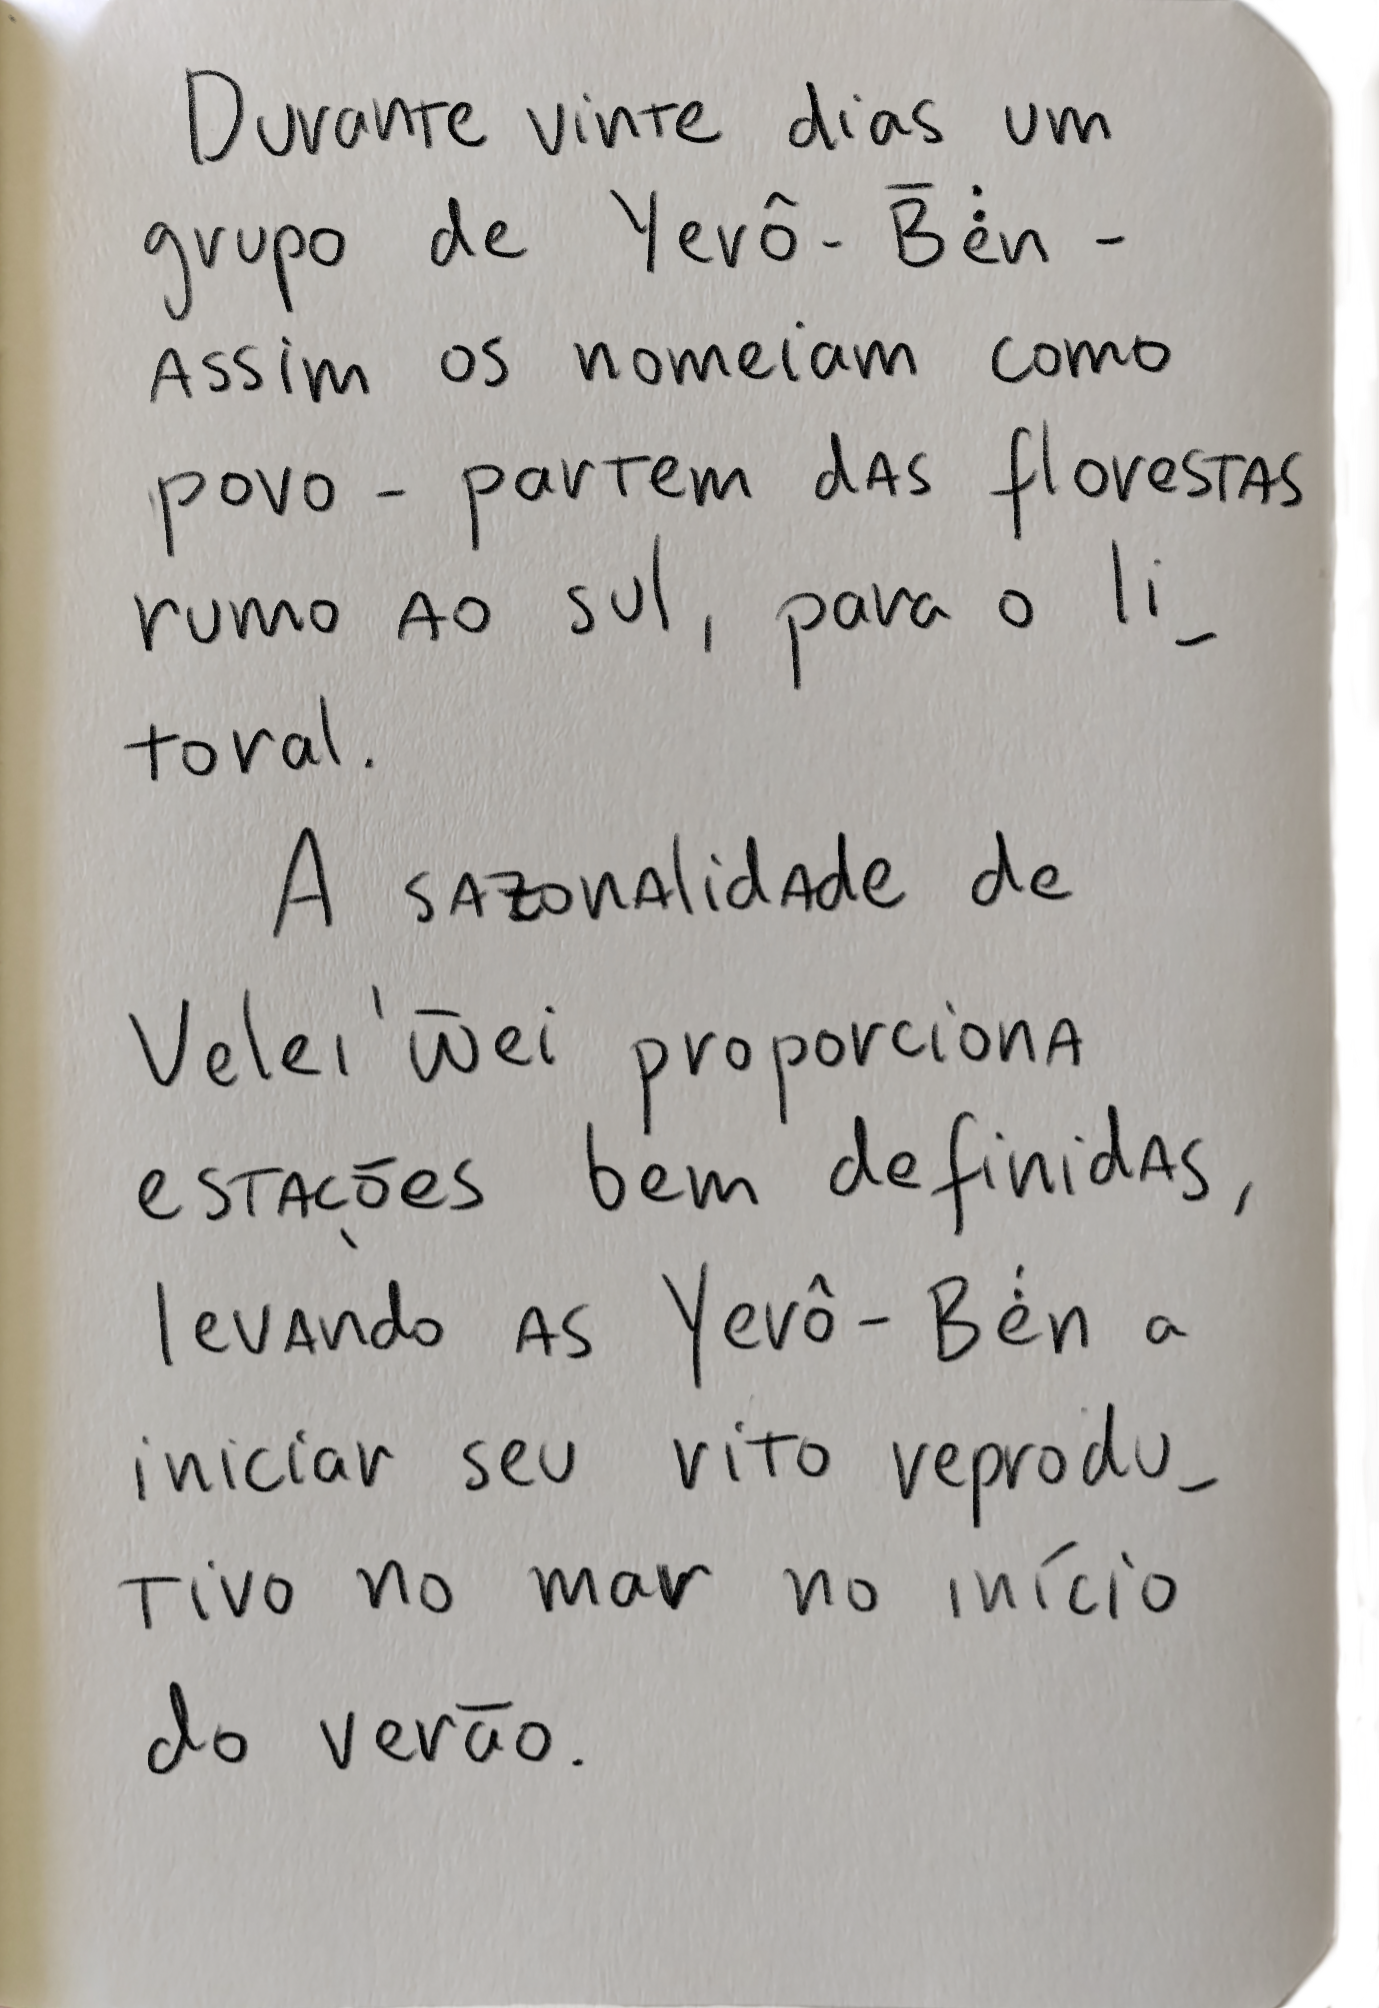 Durante vinte dias um
grupo de Yerô-B̄ėn -
Assim os nomeiam como
povo - partem das florestas
rumo ao sul, para o li_
toral.
A sazonalidade de
Velei'w̄ei proporciona
estações bem definidas,
levando as Yerô-Bėn a
iniciar seu rito reprodu_
tivo no mar no início
do verão.